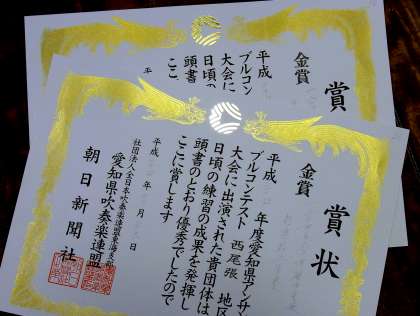 賞状
金賞
平成 年度愛知県アンサ
ブルコンテスト 西尾張 地区
大会に出演された貴団体は
日頃の練習の成果を発揮し
頭書のとおり優秀でしたので
ここに賞します
平成 年 月 日
社団法人全日本吹奏楽連盟東海支部
愛知県吹奏楽連盟
朝日新聞社
賞
金賞
平成
ブルコン
大会に
日頃の
頭書
ここ
平